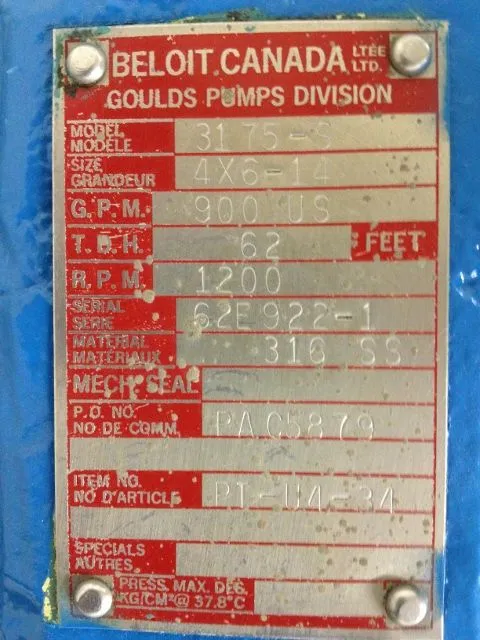 BELOIT CANADA LTÉE LTD.
GOULDS PUMPS DIVISION
MODEL MODÈLE 3175-S
SIZE GRANDEUR 4X6-14
G.P.M. 900 US
T.D.H. 62 FEET
R.P.M. 1200
SERIAL SÉRIE 62E922-1
MATERIAL MATÉRIAUX 316 SS
MECH SEAL
P.O. NO. NO DE COMM. PAC5879
ITEM NO. NO D'ARTICLE PT-U4-34
SPECIALS AUTRES
PRESS. MAX. DES.
KG/CM² @ 37.8°C